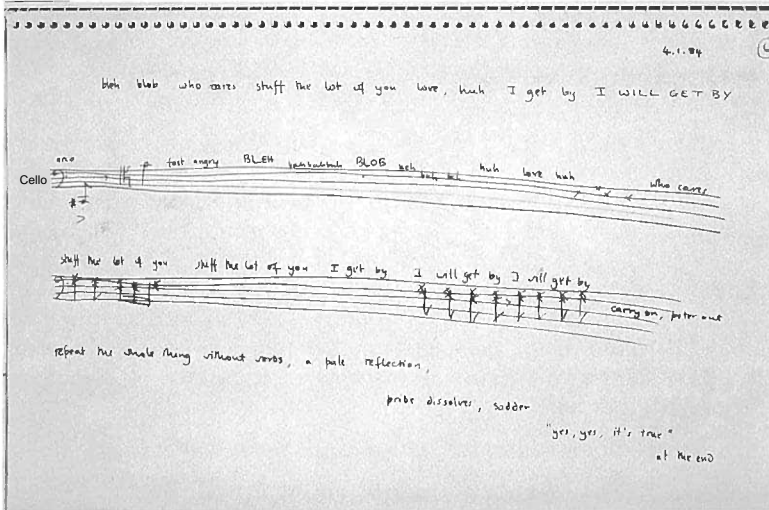 4.1.84
bleh blob who cares stuff the lot of you love, huh I get by I WILL GET BY
arco
fast angry BLEH buhbuhbuh BLOB huh love huh who cares
Cello
stuff the lot of you stuff the lot of you I get by I will get by I will get by
carry on, peter out
repeat the whole thing without words, a pale reflection,
pride dissolves, sadder
"yes, yes, it's true"
at the end